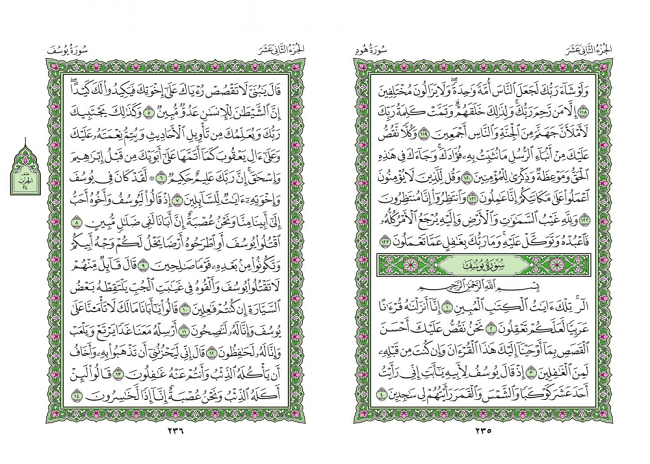 الجزء الثاني عشر
سورة هود
وَلَوْ شَآءَ رَبُّكَ لَجَعَلَ ٱلنَّاسَ أُمَّةً وَٰحِدَةً ۖ وَلَا يَزَالُونَ مُخْتَلِفِينَ
١١٨ إِلَّا مَن رَّحِمَ رَبُّكَ ۚ وَلِذَٰلِكَ خَلَقَهُمْ ۗ وَتَمَّتْ كَلِمَةُ رَبِّكَ
لَأَمْلَأَنَّ جَهَنَّمَ مِنَ ٱلْجِنَّةِ وَٱلنَّاسِ أَجْمَعِينَ ١١٩ وَكُلًّا نَّقُصُّ
عَلَيْكَ مِنْ أَنۢبَآءِ ٱلرُّسُلِ مَا نُثَبِّتُ بِهِۦ فُؤَادَكَ ۚ وَجَآءَكَ فِى هَٰذِهِ
ٱلْحَقُّ وَمَوْعِظَةٌ وَذِكْرَىٰ لِلْمُؤْمِنِينَ ١٢٠ وَقُل لِّلَّذِينَ لَا يُؤْمِنُونَ
ٱعْمَلُوا۟ عَلَىٰ مَكَانَتِكُمْ إِنَّا عَٰمِلُونَ ١٢١ وَٱنتَظِرُوٓا۟ إِنَّا مُنتَظِرُونَ
١٢٢ وَلِلَّهِ غَيْبُ ٱلسَّمَٰوَٰتِ وَٱلْأَرْضِ وَإِلَيْهِ يُرْجَعُ ٱلْأَمْرُ كُلُّهُۥ
فَٱعْبُدْهُ وَتَوَكَّلْ عَلَيْهِ ۚ وَمَا رَبُّكَ بِغَٰفِلٍ عَمَّا تَعْمَلُونَ ١٢٣
سورة يوسف
بِسْمِ ٱللَّهِ ٱلرَّحْمَٰنِ ٱلرَّحِيمِ
الٓر ۚ تِلْكَ ءَايَٰتُ ٱلْكِتَٰبِ ٱلْمُبِينِ ١ إِنَّآ أَنزَلْنَٰهُ قُرْءَٰنًا
عَرَبِيًّا لَّعَلَّكُمْ تَعْقِلُونَ ٢ نَحْنُ نَقُصُّ عَلَيْكَ أَحْسَنَ
ٱلْقَصَصِ بِمَآ أَوْحَيْنَآ إِلَيْكَ هَٰذَا ٱلْقُرْءَانَ وَإِن كُنتَ مِن قَبْلِهِۦ
لَمِنَ ٱلْغَٰفِلِينَ ٣ إِذْ قَالَ يُوسُفُ لِأَبِيهِ يَٰٓأَبَتِ إِنِّى رَأَيْتُ
أَحَدَ عَشَرَ كَوْكَبًا وَٱلشَّمْسَ وَٱلْقَمَرَ رَأَيْتُهُمْ لِى سَٰجِدِينَ ٤
٢٣٥
الجزء الثاني عشر
سورة يوسف
قَالَ يَٰبُنَىَّ لَا تَقْصُصْ رُءْيَاكَ عَلَىٰٓ إِخْوَتِكَ فَيَكِيدُوا۟ لَكَ كَيْدًا ۖ
إِنَّ ٱلشَّيْطَٰنَ لِلْإِنسَٰنِ عَدُوٌّ مُّبِينٌ ٥ وَكَذَٰلِكَ يَجْتَبِيكَ
رَبُّكَ وَيُعَلِّمُكَ مِن تَأْوِيلِ ٱلْأَحَادِيثِ وَيُتِمُّ نِعْمَتَهُۥ عَلَيْكَ
وَعَلَىٰٓ ءَالِ يَعْقُوبَ كَمَآ أَتَمَّهَا عَلَىٰٓ أَبَوَيْكَ مِن قَبْلُ إِبْرَٰهِيمَ
وَإِسْحَٰقَ ۚ إِنَّ رَبَّكَ عَلِيمٌ حَكِيمٌ ٦ لَّقَدْ كَانَ فِى يُوسُفَ
وَإِخْوَتِهِۦٓ ءَايَٰتٌ لِّلسَّآئِلِينَ ٧ إِذْ قَالُوا۟ لَيُوسُفُ وَأَخُوهُ أَحَبُّ
إِلَىٰٓ أَبِينَا مِنَّا وَنَحْنُ عُصْبَةٌ إِنَّ أَبَانَا لَفِى ضَلَٰلٍ مُّبِينٍ ٨
ٱقْتُلُوا۟ يُوسُفَ أَوِ ٱطْرَحُوهُ أَرْضًا يَخْلُ لَكُمْ وَجْهُ أَبِيكُمْ
وَتَكُونُوا۟ مِنۢ بَعْدِهِۦ قَوْمًا صَٰلِحِينَ ٩ قَالَ قَآئِلٌ مِّنْهُمْ
لَا تَقْتُلُوا۟ يُوسُفَ وَأَلْقُوهُ فِى غَيَٰبَتِ ٱلْجُبِّ يَلْتَقِطْهُ بَعْضُ
ٱلسَّيَّارَةِ إِن كُنتُمْ فَٰعِلِينَ ١٠ قَالُوا۟ يَٰٓأَبَانَا مَا لَكَ لَا تَأْمَ۫نَّا عَلَىٰ
يُوسُفَ وَإِنَّا لَهُۥ لَنَٰصِحُونَ ١١ أَرْسِلْهُ مَعَنَا غَدًا يَرْتَعْ وَيَلْعَبْ
وَإِنَّا لَهُۥ لَحَٰفِظُونَ ١٢ قَالَ إِنِّى لَيَحْزُنُنِىٓ أَن تَذْهَبُوا۟ بِهِۦ وَأَخَافُ
أَن يَأْكُلَهُ ٱلذِّئْبُ وَأَنتُمْ عَنْهُ غَٰفِلُونَ ١٣ قَالُوا۟ لَئِنْ
أَكَلَهُ ٱلذِّئْبُ وَنَحْنُ عُصْبَةٌ إِنَّآ إِذًا لَّخَٰسِرُونَ ١٤
٢٣٦
الحزب
٢٤